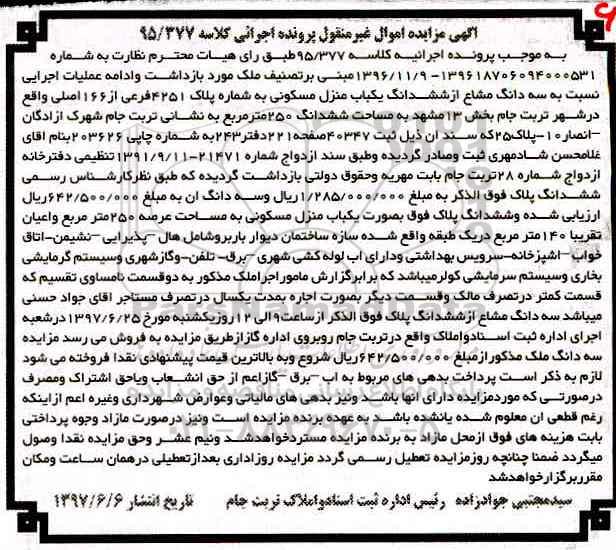 آگهی مزایده اموال غیرمنقول پرونده اجرائی کلاسه ۹۵/۳۷۷
به موجب پرونده اجرائیه کلاسه ۹۵/۳۷۷طبق رای هیات محترم نظارت به شماره
۱۳۹۶۱۸۷۰۶۰۹۴۰۰۰۵۳۱-۱۳۹۶/۱۱/۹مبنی برتصنیف ملک مورد بازداشت وادامه عملیات اجرایی
نسبت به سه دانگ مشاع ازششدانگ یکباب منزل مسکونی به شماره پلاک ۴۲۵۱فرعی از۱۶۶اصلی واقع
درشهر تربت جام بخش ۱۳مشهد به مساحت ششدانگ ۲۵۰مترمربع به نشانی تربت جام شهرک ازادگان
-انصار۱۰-پلاک۲۵که سند ان ذیل ثبت ۴۰۳۴۷صفحه۲۲۱دفتر۲۴۳به شماره چاپی ۲۰۳۶۲۶بنام اقای
غلامحسن شادمهری ثبت وصادر گردیده وطبق سند ازدواج شماره ۲۱۴۷۱-۱۳۹۱/۹/۱۱تنظیمی دفترخانه
ازدواج شماره ۲۸تربت جام بابت مهریه وحقوق دولتی بازداشت گردیده که طبق نظرکارشناس رسمی
ششدانگ پلاک فوق الذکر به مبلغ ۱/۲۸۵/۰۰۰/۰۰۰ریال وسه دانگ ان به مبلغ ۶۴۲/۵۰۰/۰۰۰ریال
ارزیابی شده وششدانگ پلاک فوق بصورت یکباب منزل مسکونی به مساحت عرصه ۲۵۰متر مربع واعیان
تقریبا ۱۴۰متر مربع دریک طبقه واقع شده سازه ساختمان دیوار باربروشامل هال -پذیرایی-نشیمن-اتاق
خواب-اشپزخانه-سرویس بهداشتی ودارای اب لوله کشی شهری-برق- تلفن-وگازشهری وسیستم گرمایشی
بخاری وسیستم سرمایشی کولرمیباشد که برابرگزارش ماموراجراملک مذکور به دوقسمت نامساوی تقسیم که
قسمت کمتر درتصرف مالک وقسمت دیگر بصورت اجاره بمدت یکسال درتصرف مستاجر اقای جواد حسنی
میباشد سه دانگ مشاع ازششدانگ پلاک فوق الذکر ازساعت۹الی ۱۲روزیکشنبه مورخ ۱۳۹۷/۶/۲۵درشعبه
اجرای اداره ثبت اسنادواملاک واقع درتربت جام روبروی اداره گازازطریق مزایده به فروش می رسد مزایده
سه دانگ ملک مذکورازمبلغ ۶۴۲/۵۰۰/۰۰۰ریال شروع وبه بالاترین قیمت پیشنهادی نقدا فروخته می شود
لازم به ذکر است پرداخت بدهی های مربوط به اب-برق-گازاعم از حق انشعاب ویاحق اشتراک ومصرف
درصورتی که موردمزایده دارای انها باشد ونیز بدهی های مالیاتی وعوارض شهرداری وغیره اعم ازاینکه
رقم قطعی ان معلوم شده یانشده باشد به عهده برنده مزایده است ونیز درصورت مازاد وجوه پرداختی
بابت هزینه های فوق ازمحل مازاد به برنده مزایده مستردخواهدشد ونیم عشر وحق مزایده نقدا وصول
میگردد ضمنا چنانچه روزمزایده تعطیل رسمی گردد مزایده روزاداری بعدازتعطیلی درهمان ساعت ومکان
مقرربرگزارخواهدشد
سیدمجتبی جوادزاده رئیس اداره ثبت اسنادواملاک تربت جام تاریخ انتشار ۱۳۹۷/۶/۶